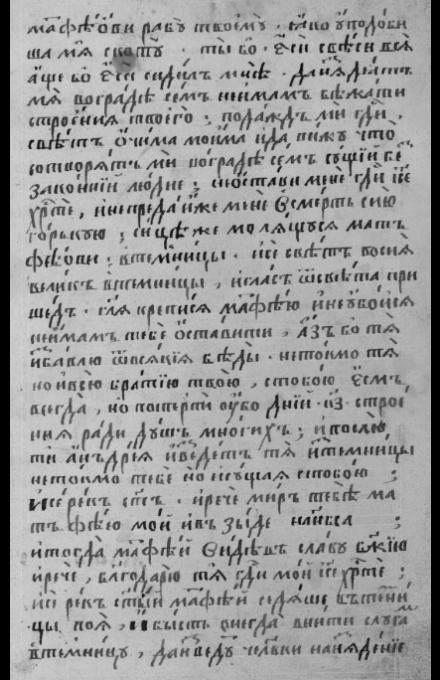 матѳеови рабу твоему, ꙗко уподоби
ша мѧ скоту. ты бо еси свѣси всѧ
аще бо еси                да
мѧ во градѣ семъ не имамъ бѣжати
строения твоего; подаждь ми гди
свѣтъ очима моима да вижу что
сотворятъ ми во градѣ семъ сущїи бе
законнїи людие; не остави мене гди ісе
хрте, и не предаиже мене смерть сию
горькую; сице же молящуся мат
феови в темницы. исе свѣтъ восия
великъ в темницы, и гласъ ѿ свѣта при
шедъ. гля крепися матѳею и не убоися
не имамъ тебе оставити, азъ бо тя
избавлю ѿ всякїя беды. не токмо тя
но и всю братїю твою, с тобою есмъ
всегда, но потерпи убо дний. строе
ния ради душъ многихъ; и послю
ти андрея изведетъ тя ис темницы
не токмо тебе но и сущая с тобою;
и се рекъ спсъ. и рече миръ тебе ма
тъфѣю мой и взыде на нбса;
и тогда матѳей видѣвъ славу бжїю
и рече, благодарю тя гди мой ісе хрте;
и се рекъ стый матѳей седяше в темни
цы поя, и бысть          внити слуга
в темницу, да изведу         на ядение